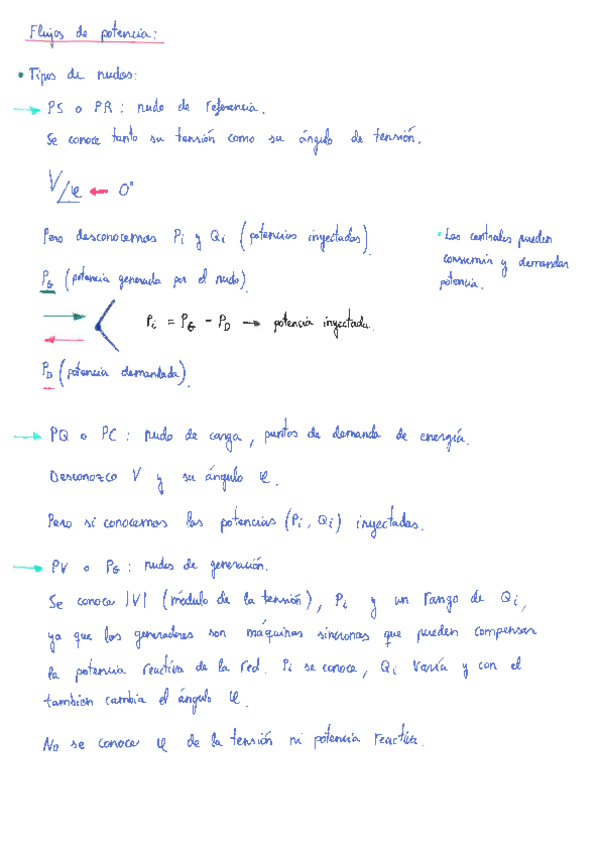 Flujos de potencia:
• Tipos de nudos:
→ PS o PR: nudo de referencia.
Se conoce tanto su tensión como su ángulo de tensión.
V/φ ← 0°
Pero desconocemos Pi y Qi (potencias inyectadas).
• Las centrales pueden
consumir y demandar
potencia.
PG (potencia generada por el nudo).
Pi = PG - PD → potencia inyectada.
PD (potencia demandada).
→ PQ o PC: nudo de carga, puntos de demanda de energía.
Desconozco V y su ángulo φ.
Pero si conocemos las potencias (Pi, Qi) inyectadas.
→ PV o PG: nudos de generación.
Se conoce |V| (módulo de la tensión), Pi y un rango de Qi,
ya que los generadores son máquinas síncronas que pueden compensar
la potencia reactiva de la red. Pi se conoce, Qi varía y con el
tambien cambia el ángulo φ.
No se conoce φ de la tensión ni potencia reactiva.